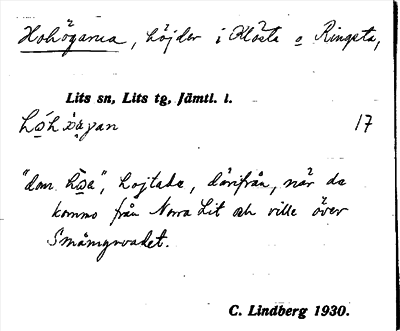 Hohögarna, höjder i Klösta o Ringsta,
Lits sn, Lits tg, Jämtl. l.
17
"dom hoa", hojtade, därifrån, när de
kommo från Norra Lit och ville över
C. Lindberg 1930.